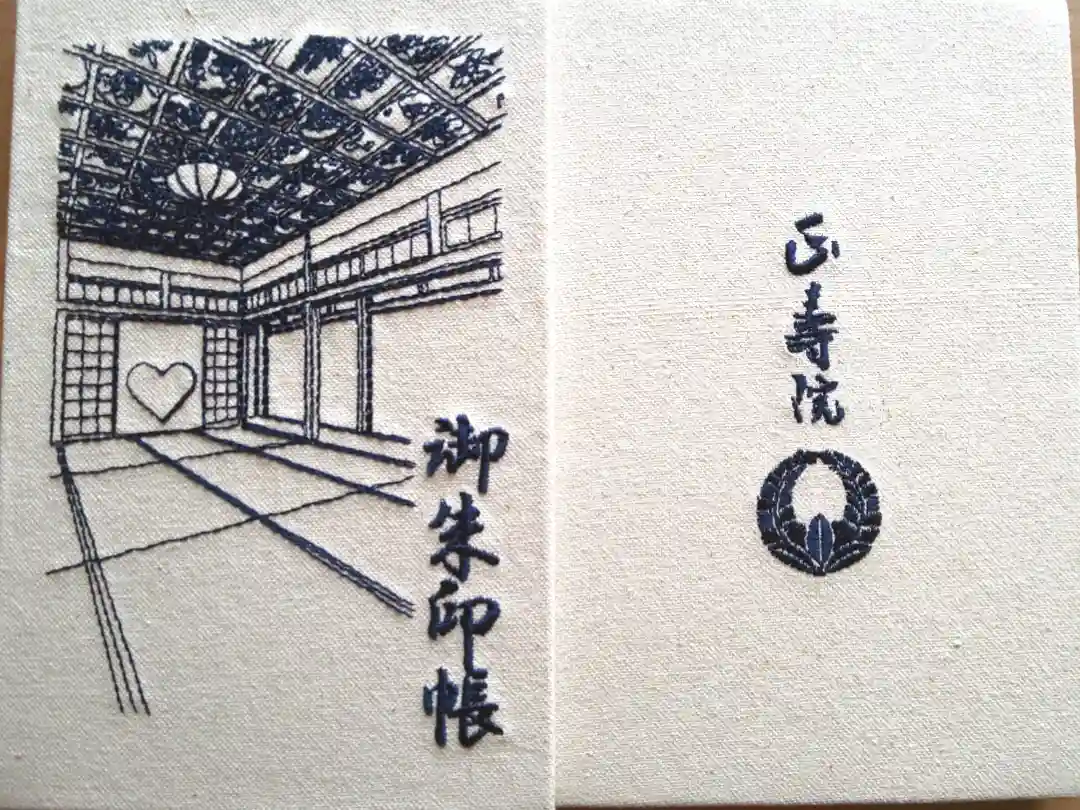 御朱印帳
正寿院